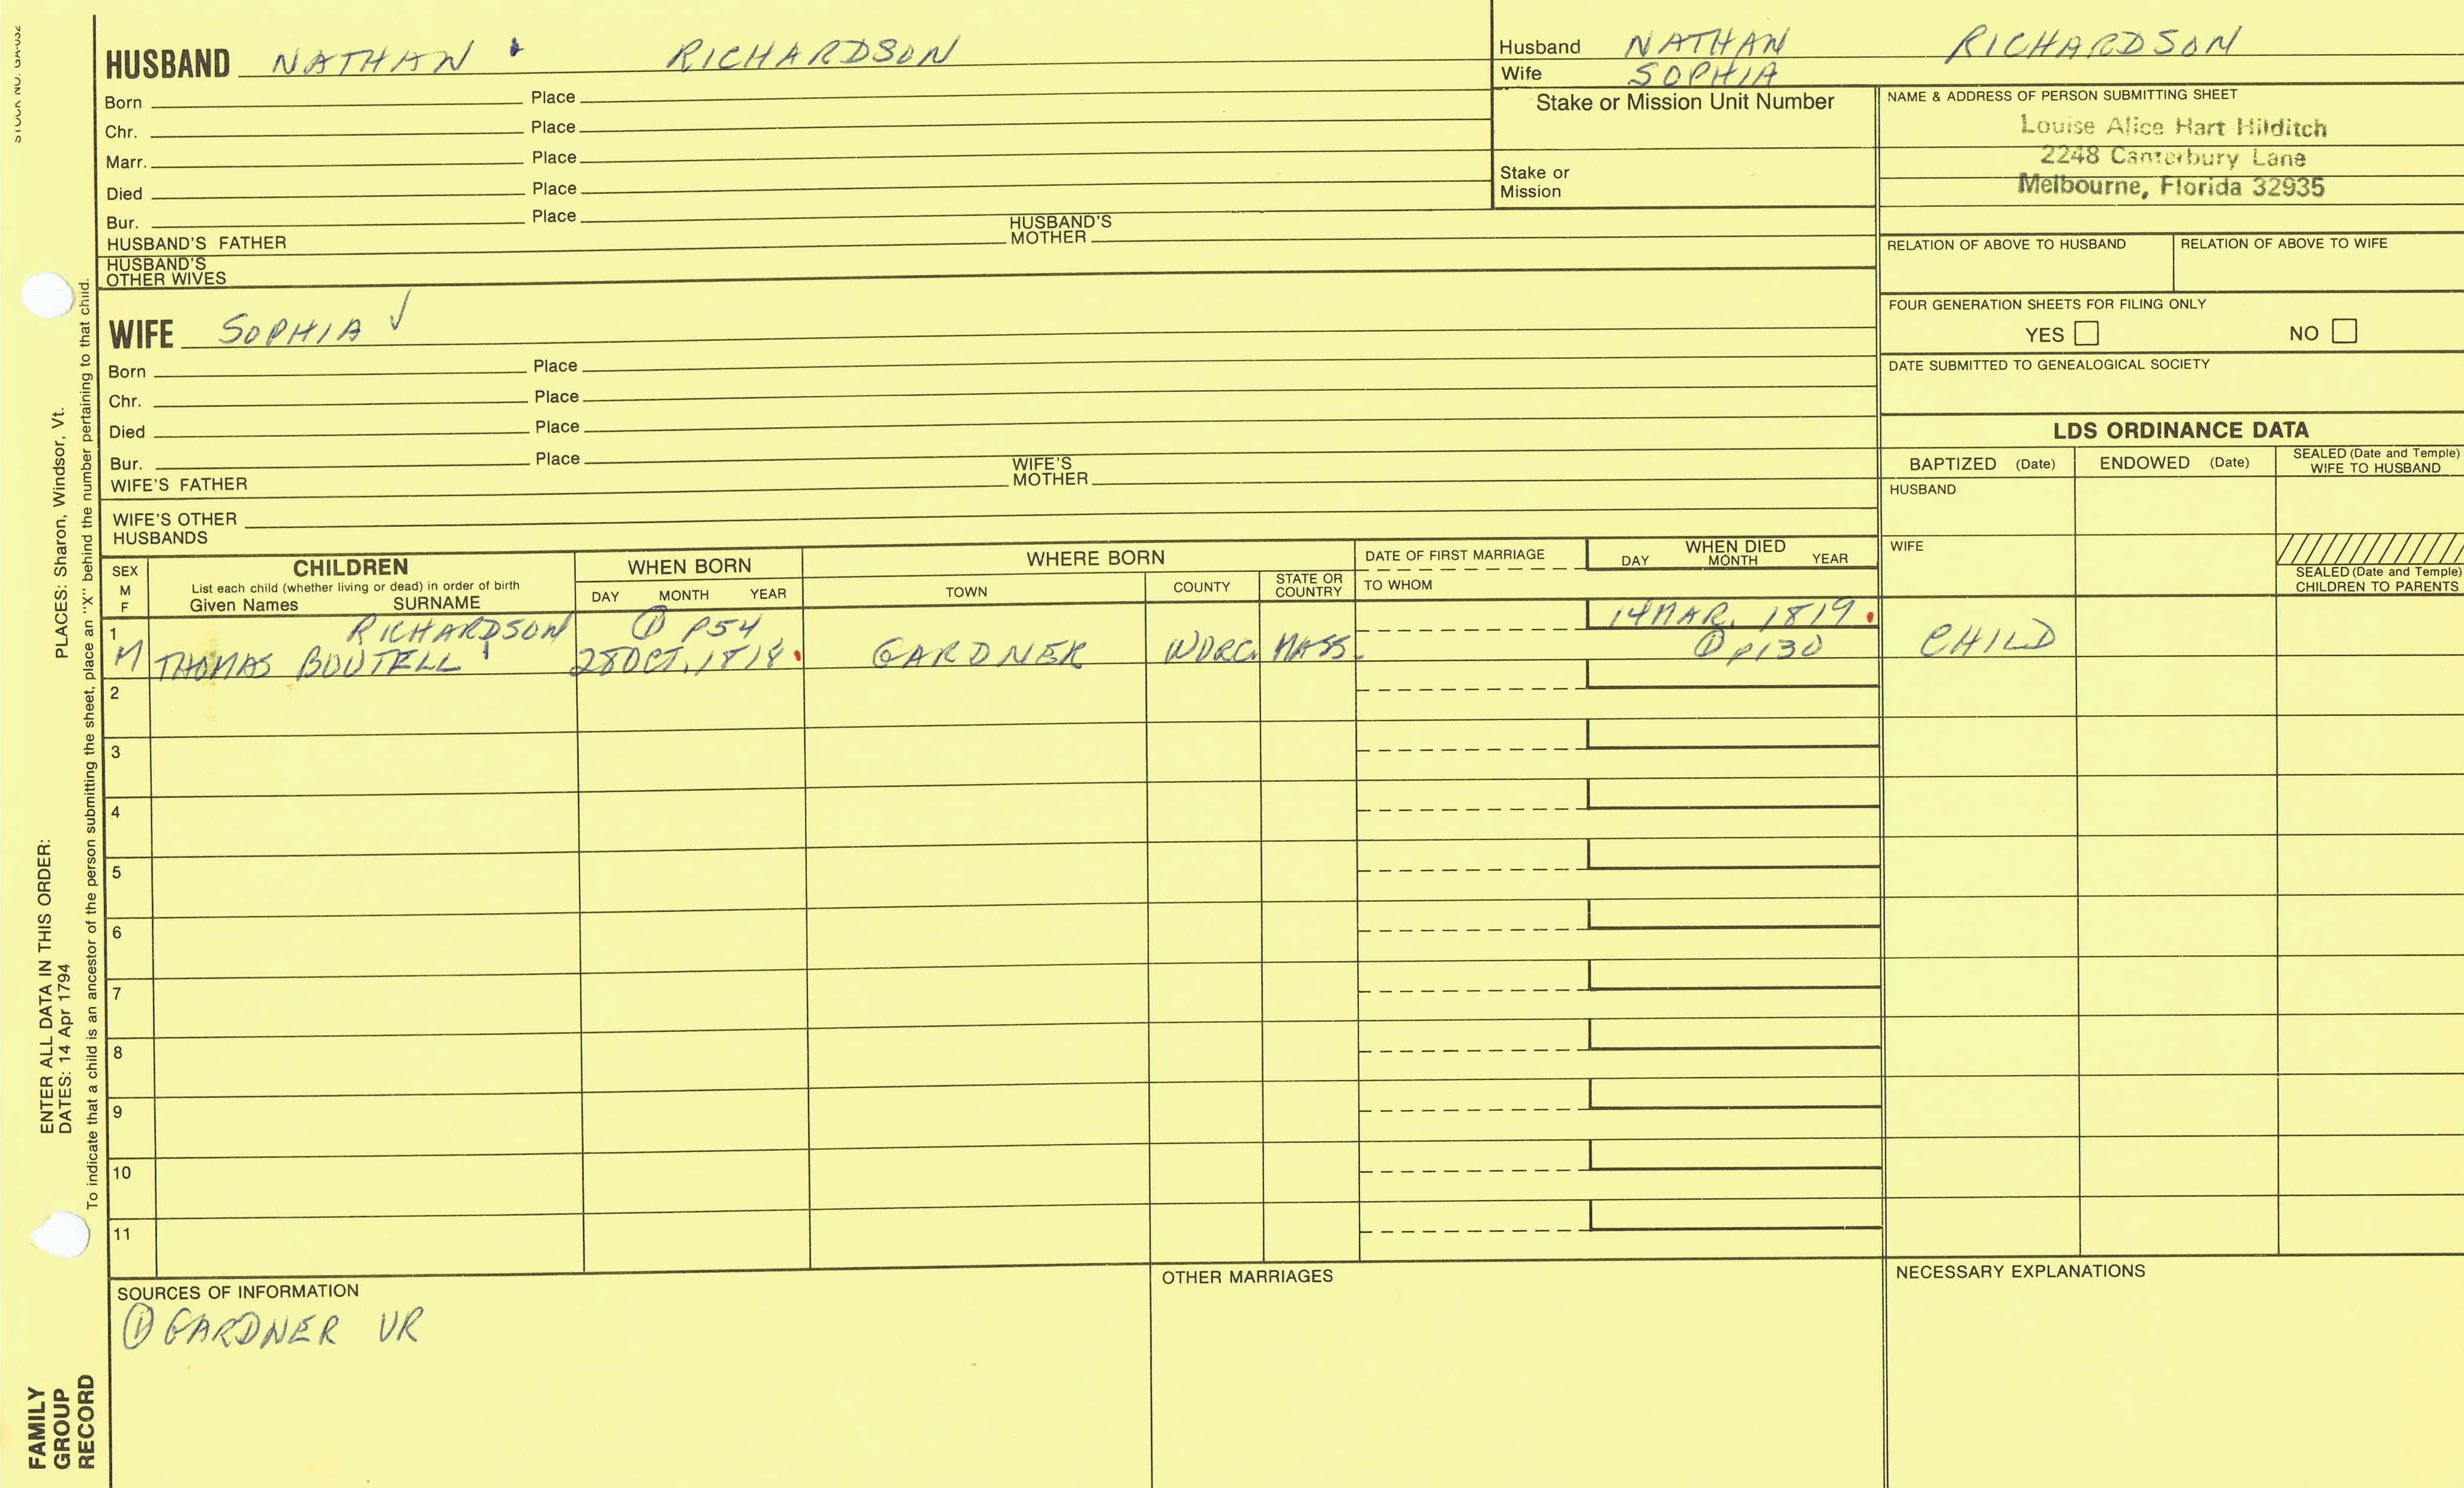 STOCK NO. GA-032
HUSBAND NATHAN RICHARDSON
Born Place
Chr. Place
Marr. Place
Died Place
Bur. Place
HUSBAND'S FATHER HUSBAND'S MOTHER
HUSBAND'S OTHER WIVES
WIFE SOPHIA √
Born Place
Chr. Place
Died Place
Bur. Place
WIFE'S FATHER WIFE'S MOTHER
WIFE'S OTHER HUSBANDS
Husband NATHAN RICHARDSON
Wife SOPHIA
Stake or Mission Unit Number
Stake or
Mission
NAME & ADDRESS OF PERSON SUBMITTING SHEET
Louise Alice Hart Hilditch
2248 Canterbury Lane
Melbourne, Florida 32935
RELATION OF ABOVE TO HUSBAND RELATION OF ABOVE TO WIFE
FOUR GENERATION SHEETS FOR FILING ONLY
YES NO
DATE SUBMITTED TO GENEALOGICAL SOCIETY
LDS ORDINANCE DATA
BAPTIZED (Date) ENDOWED (Date) SEALED (Date and Temple) WIFE TO HUSBAND
HUSBAND
WIFE
SEALED (Date and Temple)
CHILDREN TO PARENTS
SEX M F CHILDREN WHEN BORN WHERE BORN DATE OF FIRST MARRIAGE WHEN DIED
List each child (whether living or dead) in order of birth
Given Names SURNAME DAY MONTH YEAR TOWN COUNTY STATE OR COUNTRY TO WHOM DAY MONTH YEAR
1 RICHARDSON ① P54 14 MAR. 1819.
M THOMAS BOUTELL 28 OCT. 1818. GARDNER WORC. MASS. ① p130 CHILD
2
3
4
5
6
7
8
9
10
11
SOURCES OF INFORMATION
① GARDNER VR
OTHER MARRIAGES
NECESSARY EXPLANATIONS
ENTER ALL DATA IN THIS ORDER:
DATES: 14 Apr 1794 PLACES: Sharon, Windsor, Vt.
To indicate that a child is an ancestor of the person submitting the sheet, place an "X" behind the number pertaining to that child.
FAMILY
GROUP
RECORD